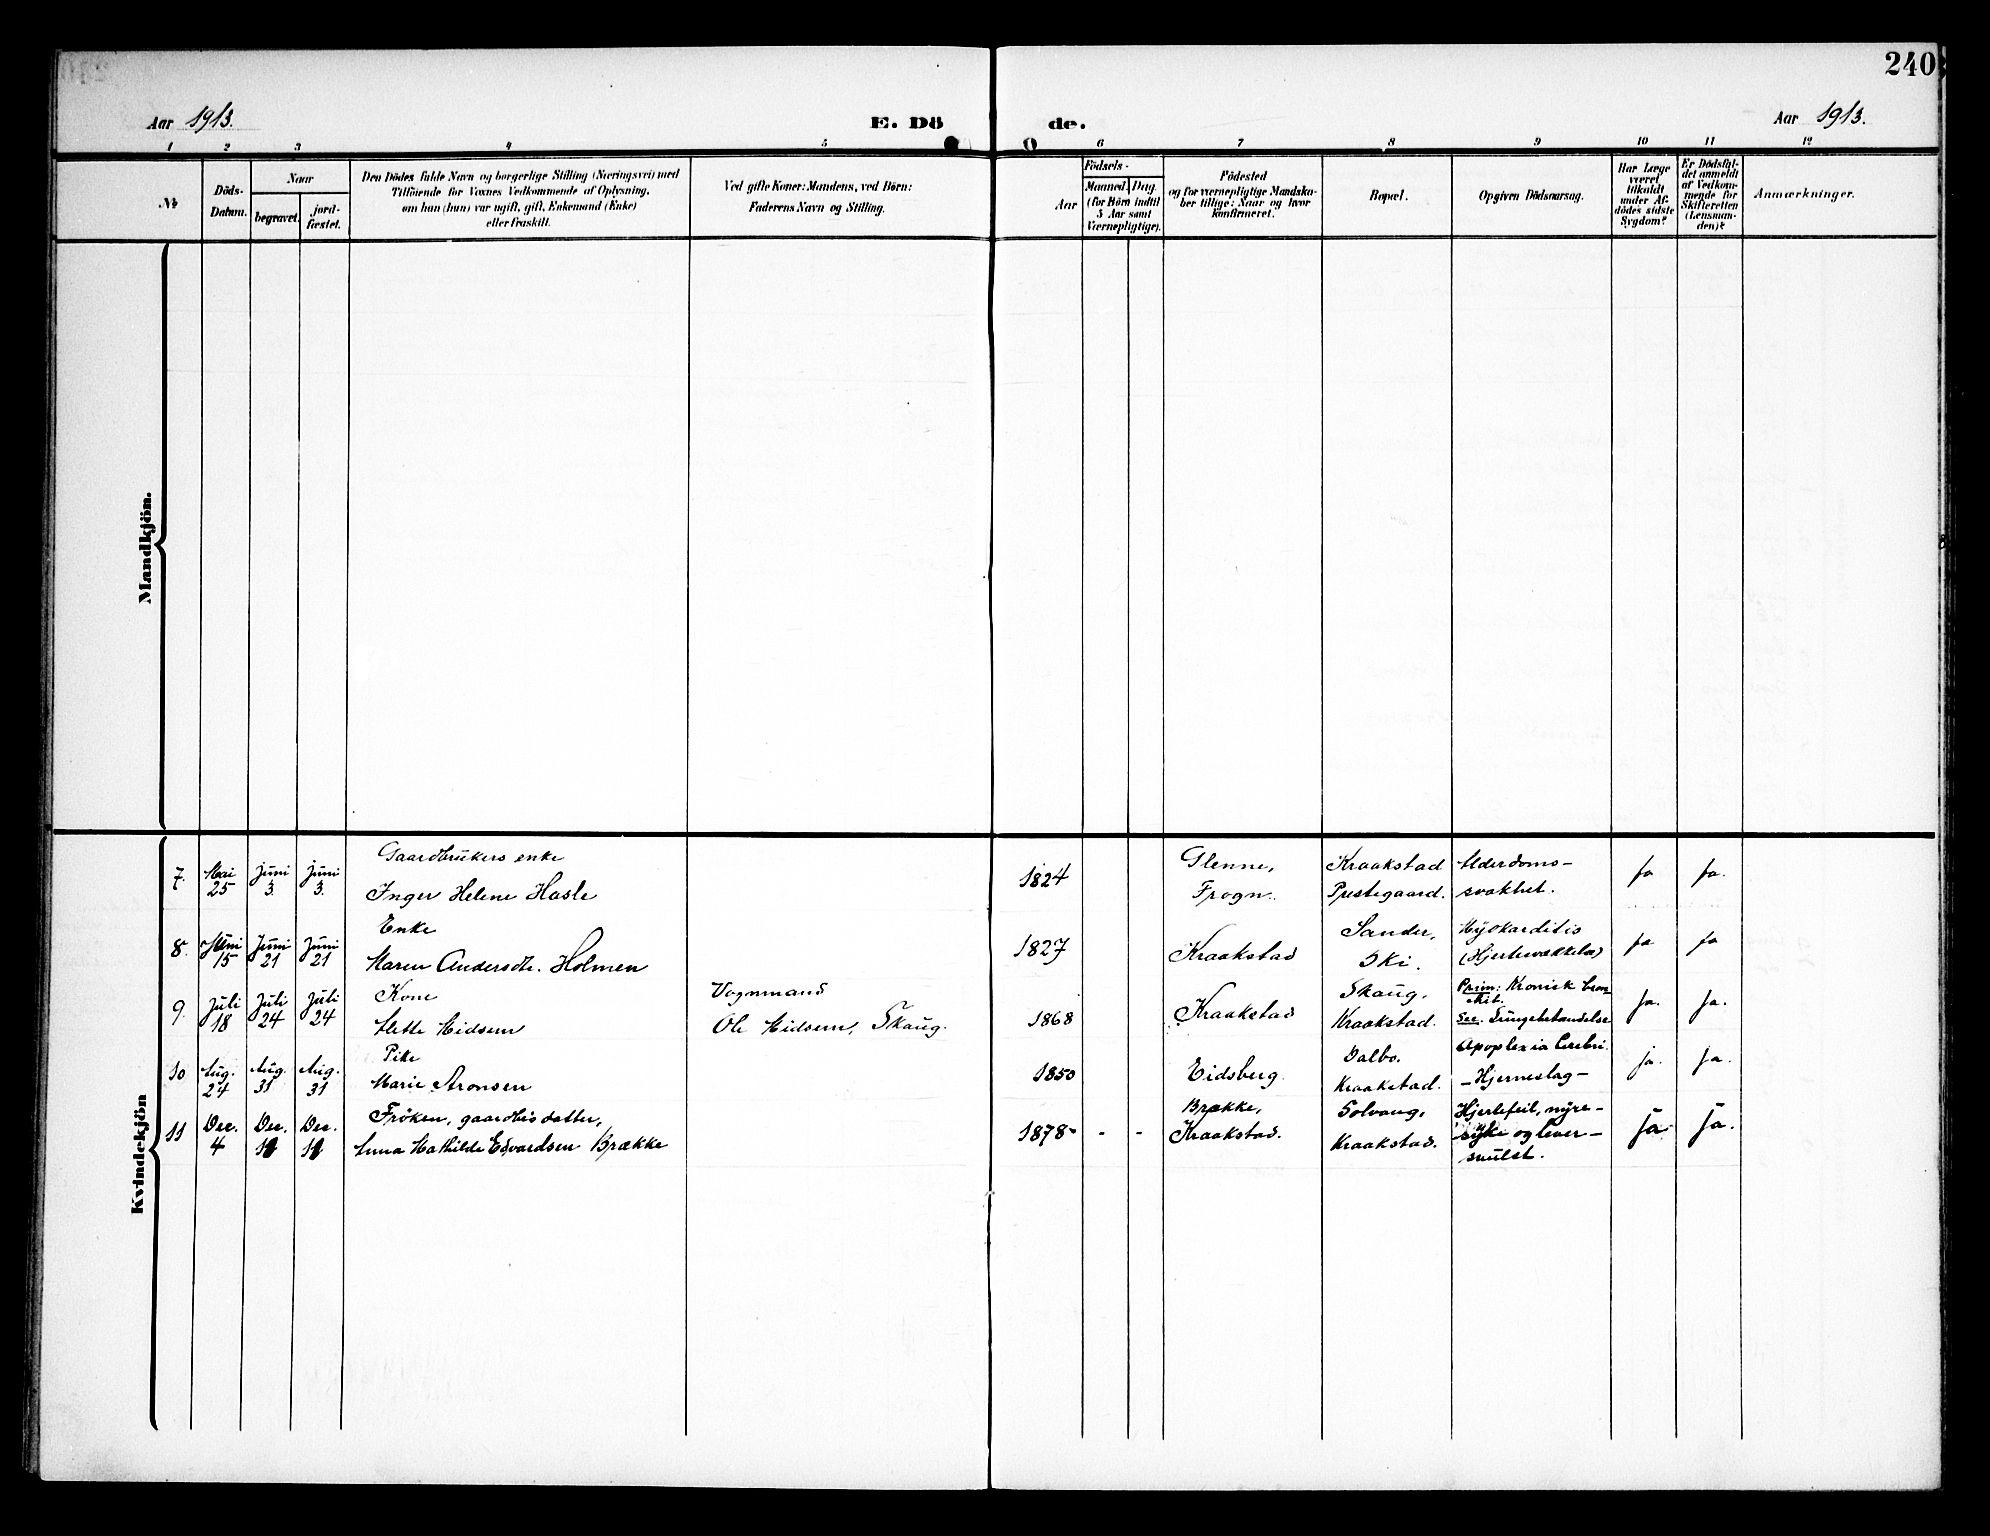 240
Aar 1913. E. Dö de. Aar 1913.
1 2 3 4 5 6 7 8 9 10 11 12
№
Döds-
Datum.
Naar
begravet.
jord-
fæstet.
Den Dödes fulde Navn og borgerlige Stilling (Næringsvei) med
Tilföiende for Voxnes Vedkommende af Oplysning,
om han (hun) var ugift, gift, Enkemand (Enke)
eller fraskilt.
Ved gifte Koner: Mandens, ved Börn:
Faderens Navn og Stilling.
Födsels-
Aar
Maaned Dag
(for Börn indtil
5 Aar samt
Værnepligtige).
Födested
og for værnepligtige Mandska-
ber tillige: Naar og hvor
konfirmeret.
Bopæl.
Opgiven Dödsaarsag.
Har Læge
været
tilkaldt
under Af-
dödes sidste
Sygdom?
Er Dödsfal-
det anmeldt
af Vedkom-
mende for
Skifteretten
(Lensman-
den)?
Anmærkninger.
Mandkjön.
Kvindekjön
7. Mai 25 Juni 3. Juni 3.
Gaardbrukers enke
Inger Helene Hasle
1824
Glenne,
Frogn.
Kraakstad
Prestegaard.
Alderdoms-
svakhet.
ja ja.
8. Juni 15 Juni 21 Juni 21
Enke
Maren Andersdtr. Holmen
1827
Kraakstad
Sander,
Ski.
Myokarditis
(Hjertesvækkelse)
ja ja
9. Juli 18 Juli 24 Juli 24
Kone
Mette Eidsem
Vognmand
Ole Eidsem, Skaug.
1868
Kraakstad
Skaug,
Kraakstad.
Prim: Kronisk bron-
kit.
Sec. Lungebetændelse
ja. ja.
10 Aug. 24 Aug. 31 Aug. 31
Pike
Marie Aronsen
1850
Eidsberg.
Dalbo.
Kraakstad.
Apoplexia Cerebri.
- Hjerneslag -
ja. ja.
11 Dec. 4 Dec. Dec.
Frøken, gaardbr's datter,
Anna Mathilde Edvardsen Brække
1878- - -
Brække,
Kraakstad.
Solvang,
Kraakstad.
Hjertefeil, nyre-
syke og lever-
svulst.
ja. ja.